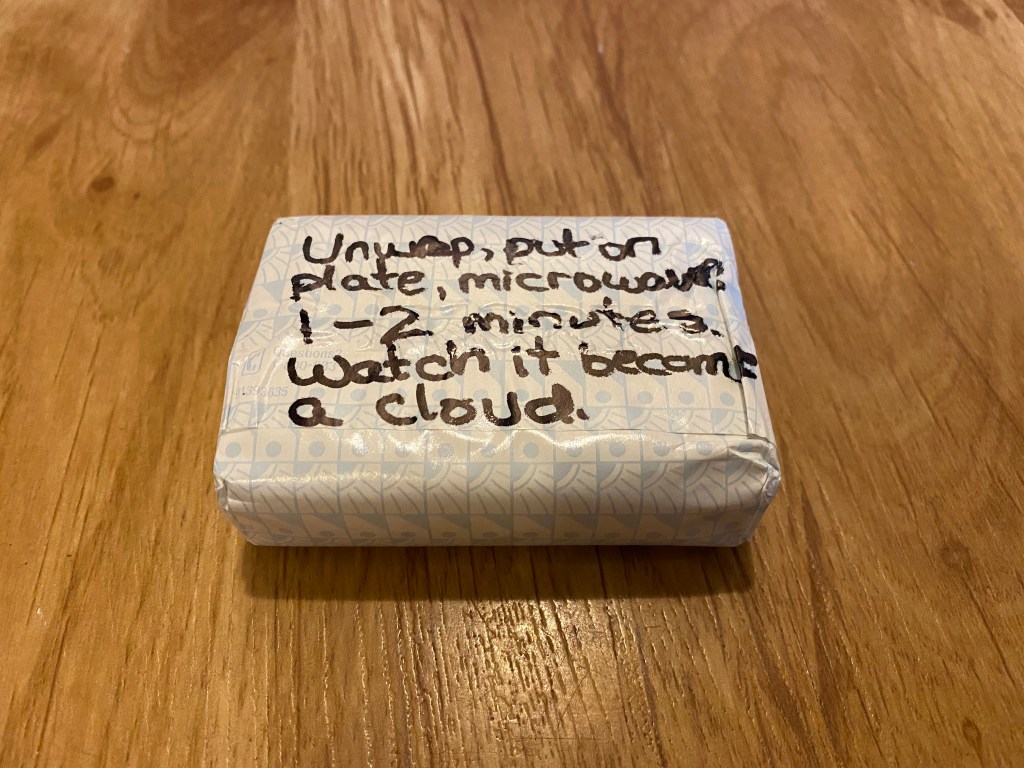 Unwrap, put on
plate, microwave.
1-2 minutes.
Watch it become
a cloud.
Questions